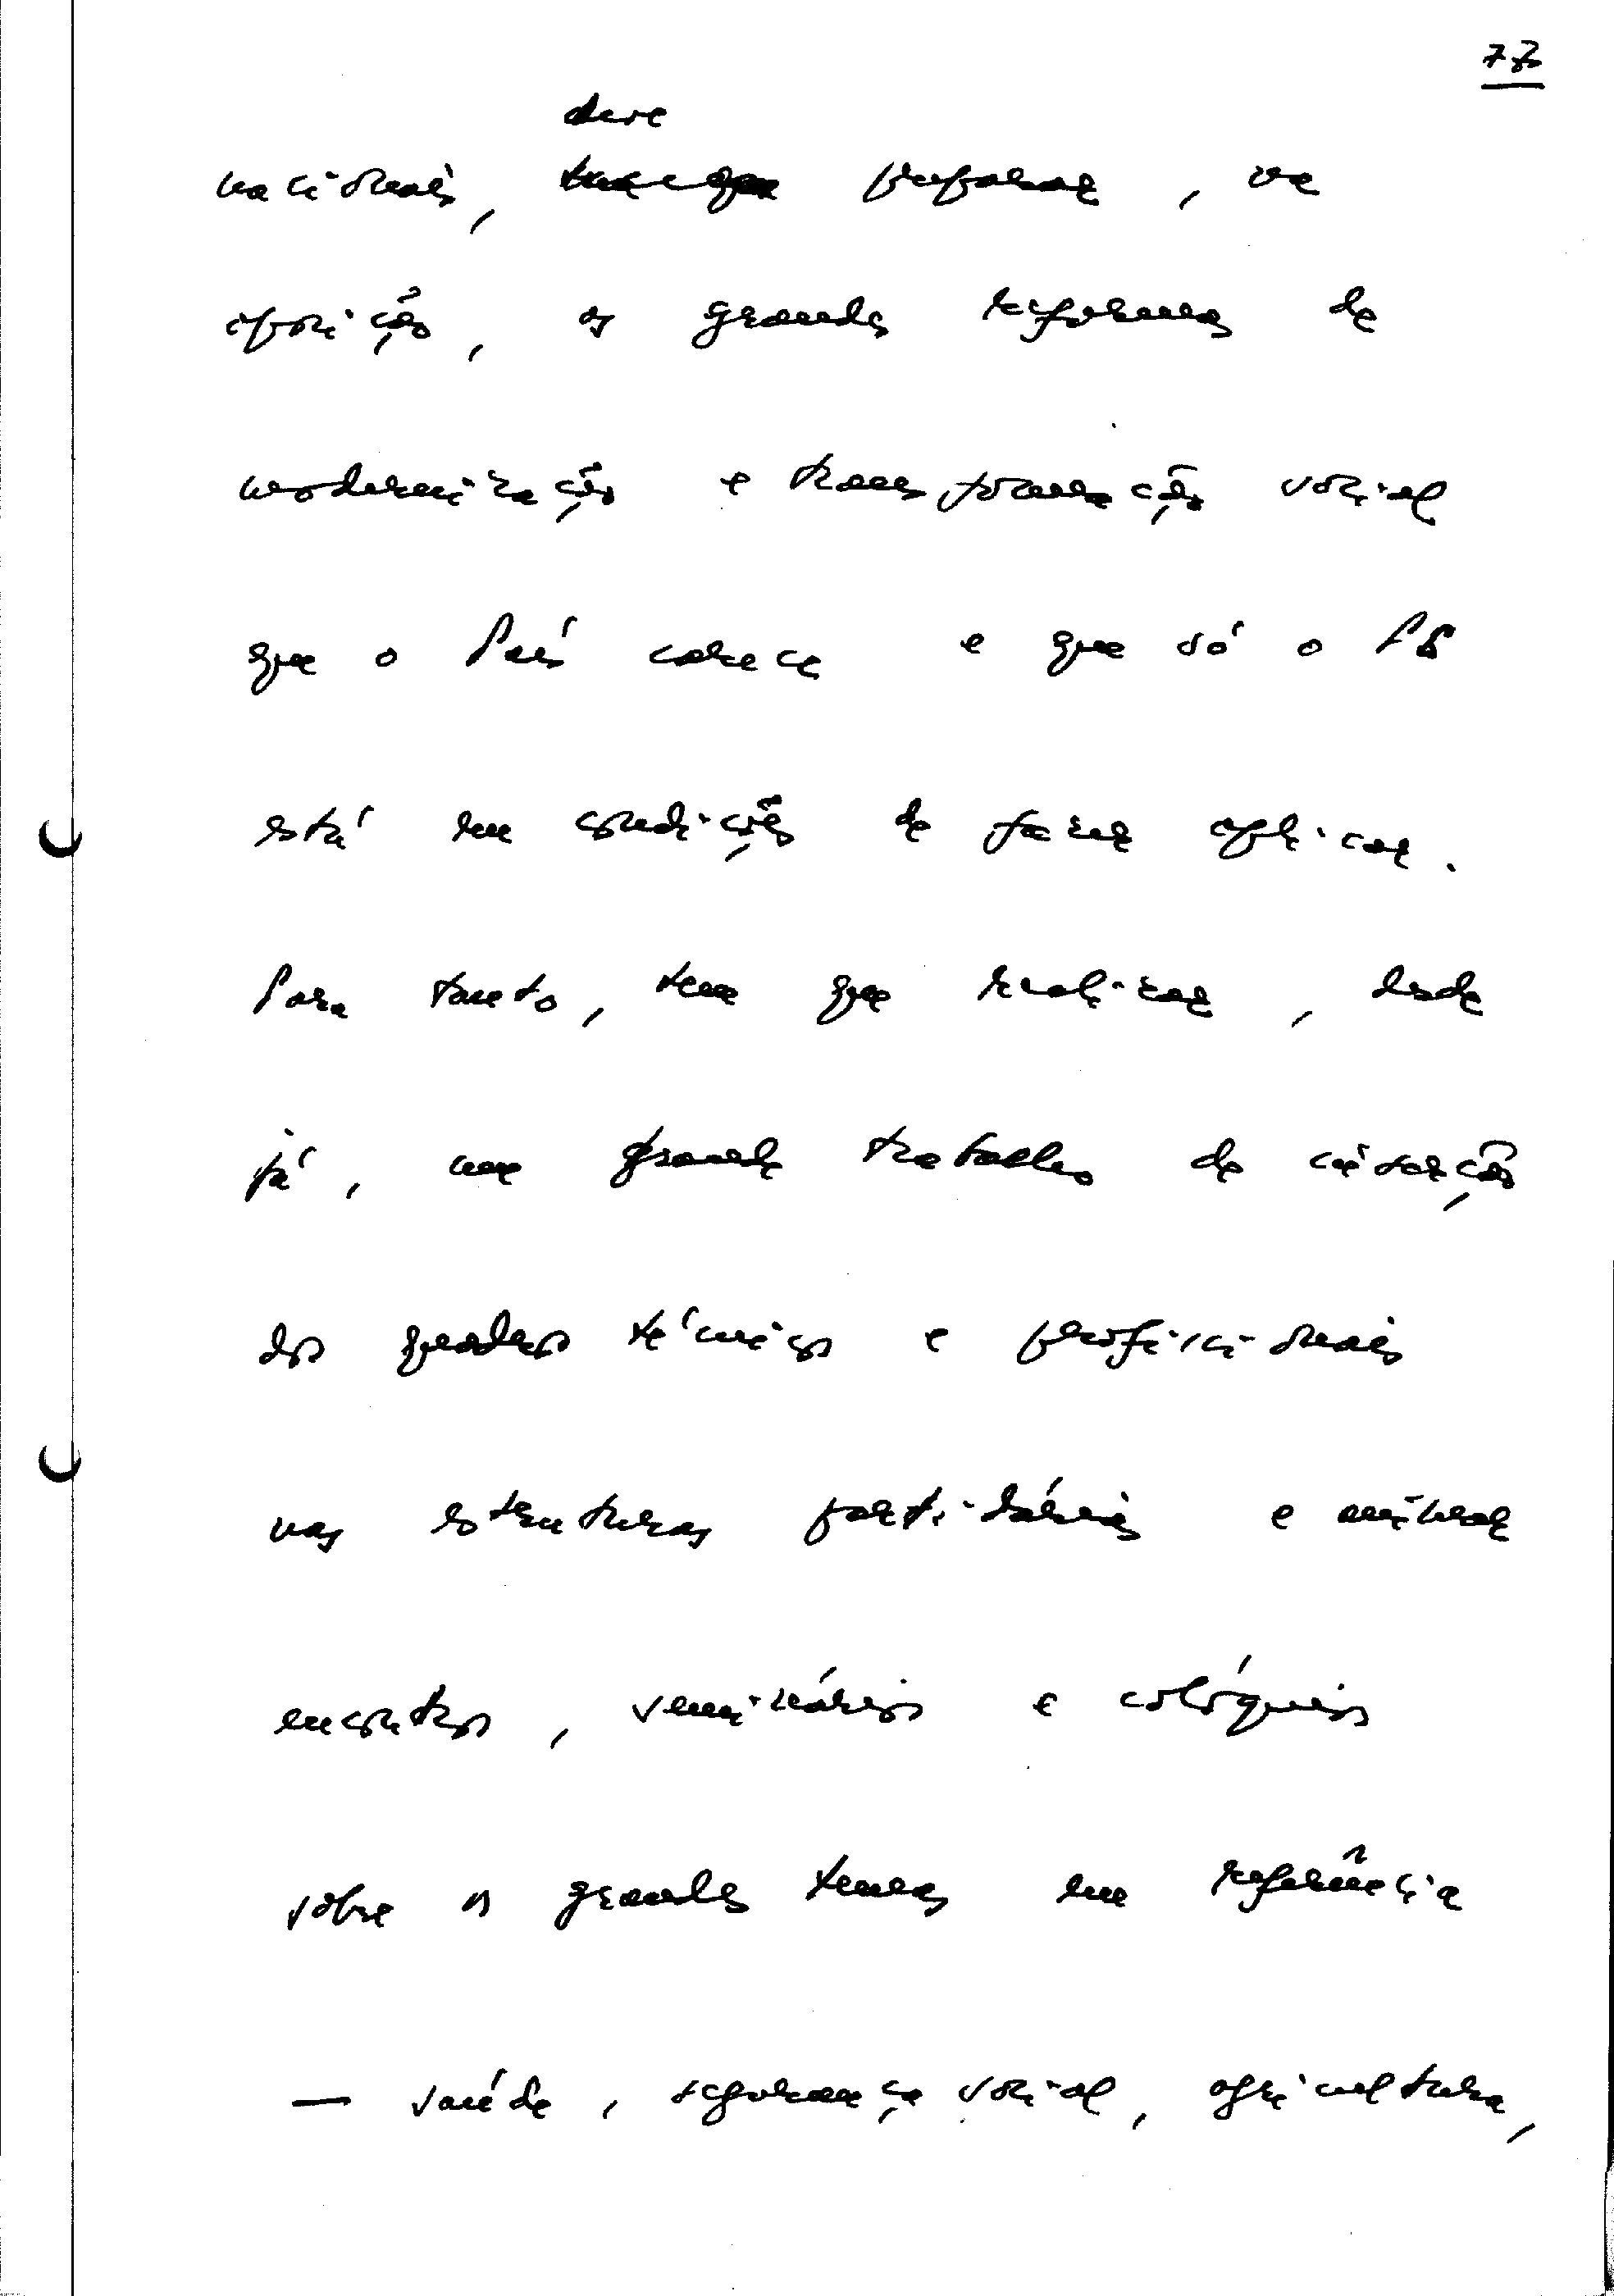 deve
nacionais, preparar, na
oposição, as grandes reformas de
modernização e transformação social
que o País carece e que só o PS
está em condições de fazer aplicar.
Para tanto, tem que realizar, desde
já, um grande trabalho de
dos quadros técnicos e profissionais
nas estruturas partidárias e animar
encontros, seminários e colóquios
sobre os grandes temas em referência
— saúde, segurança social, agricultura,